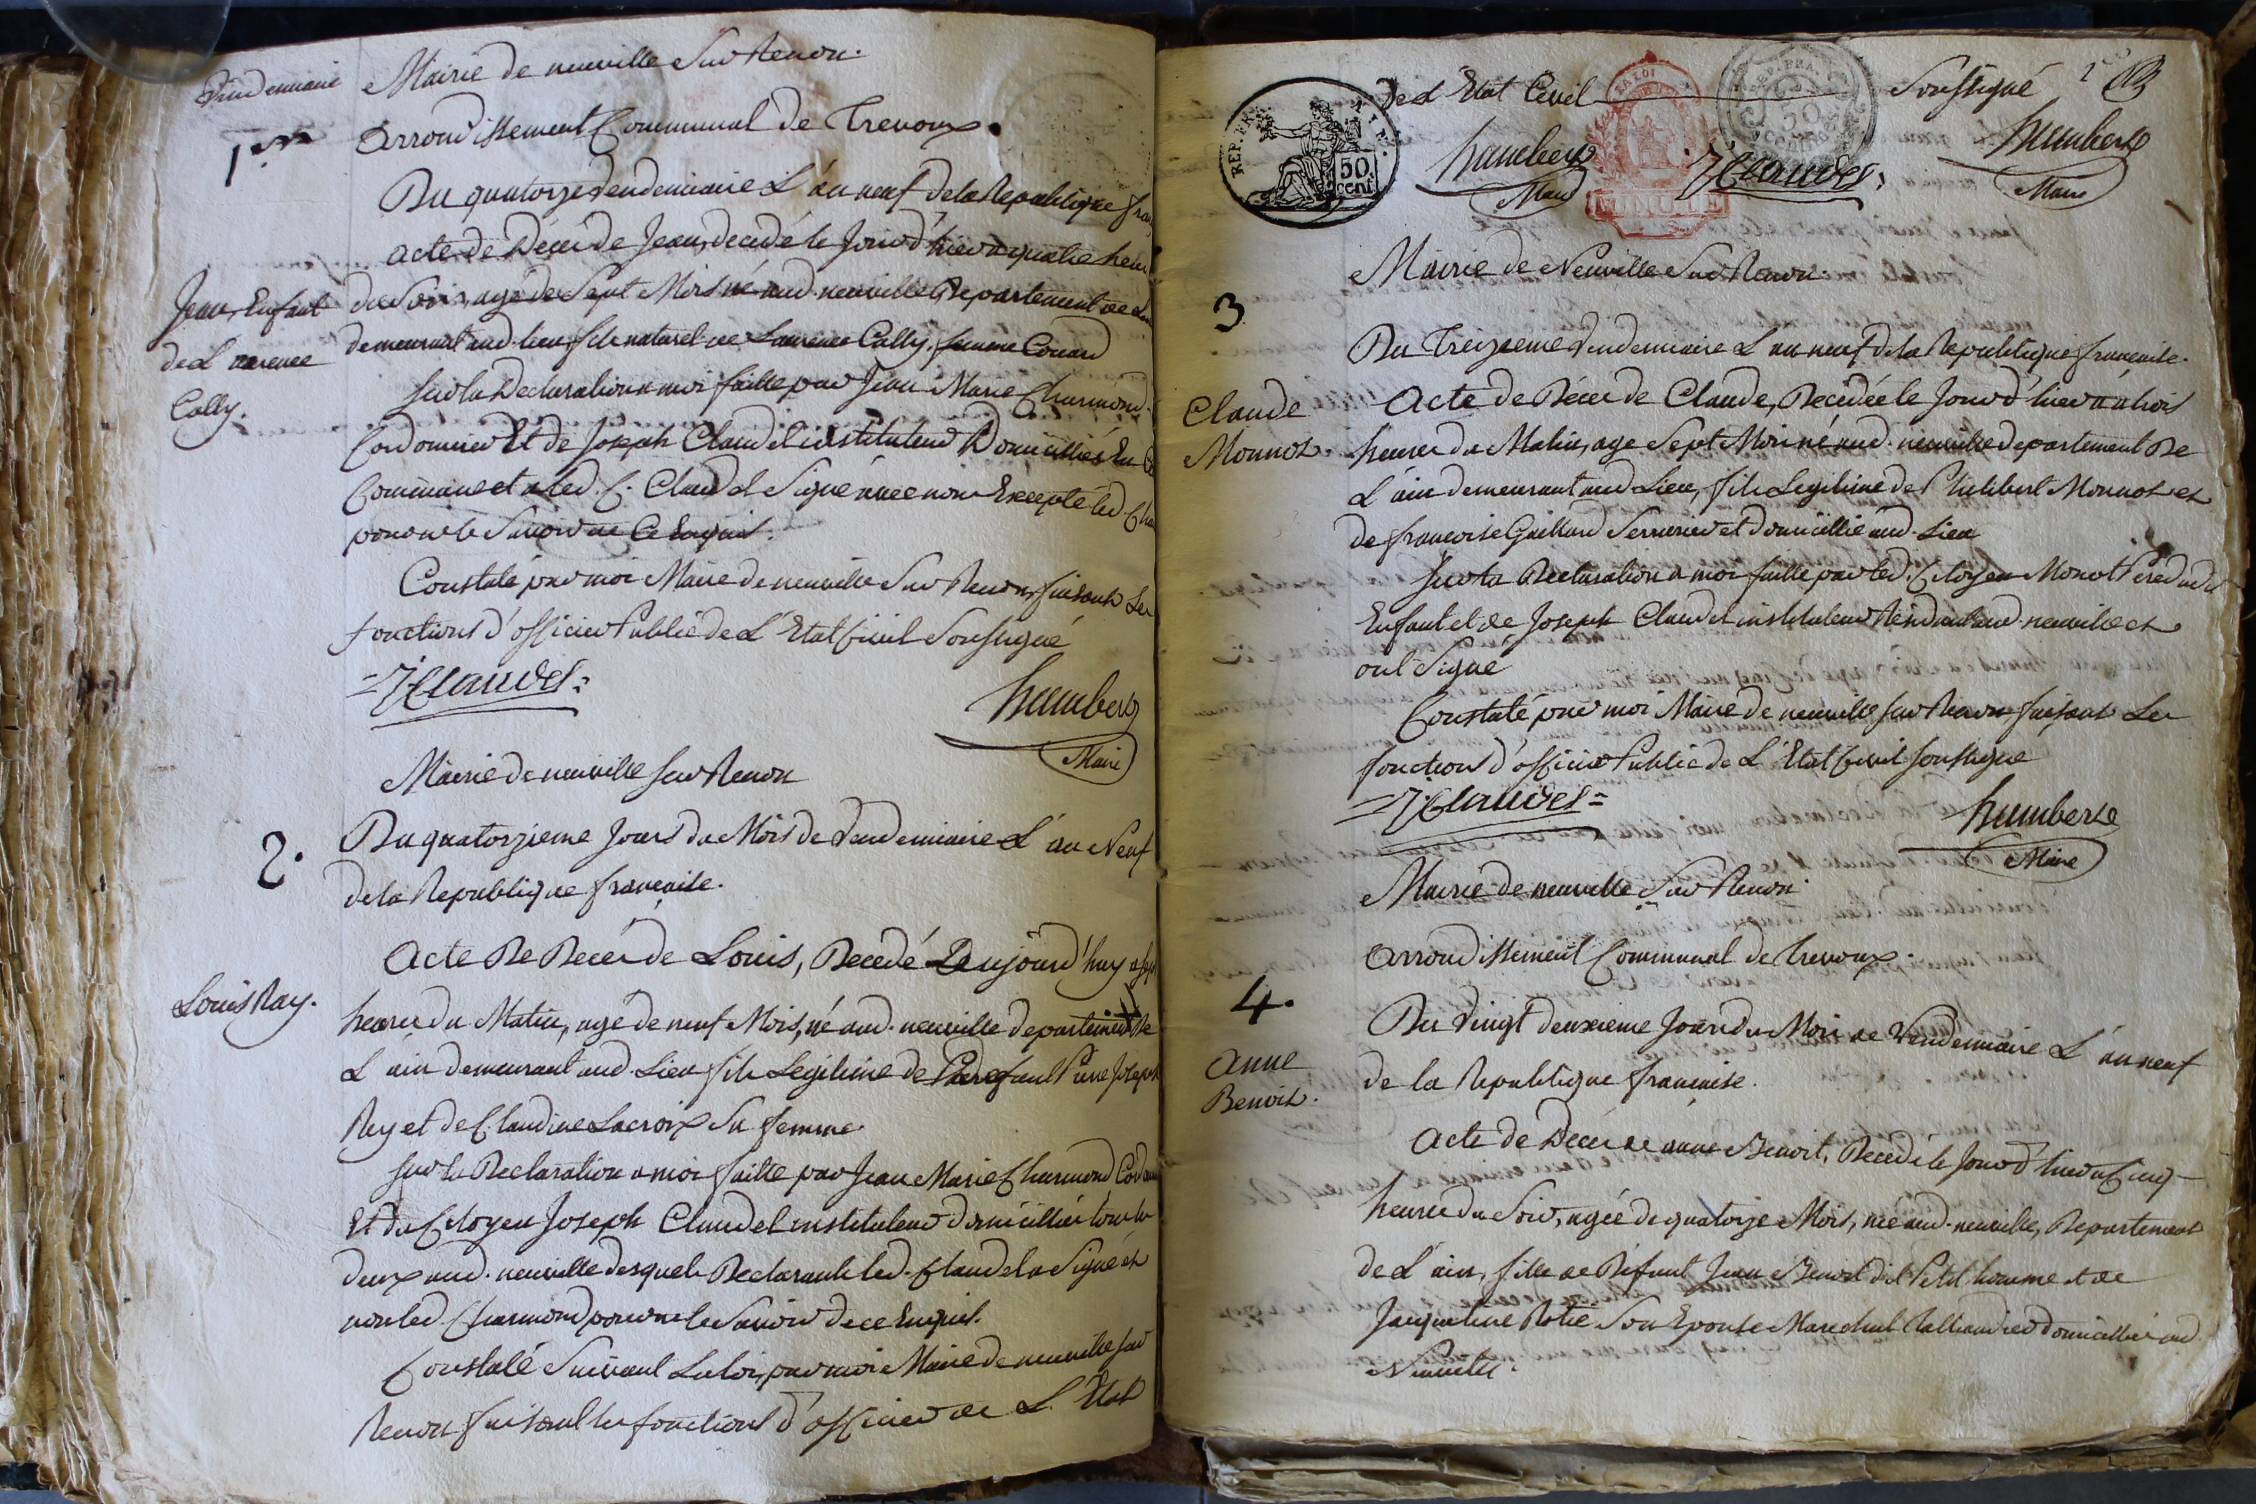 Vendemiaire
Mairie de neuville Sur Renon.
1er
arrondissement Communal de Trevoux.
Du quatorze Vendemiaire L'an neuf de la Republique fran
acte de Décés de Jean, decedé le Jour d'hier a quatre heur
Jean, Enfant
de Laurence
Cally.
du Soir, age de Sept Mois né aud. neuville Departement de
demeurant aud. lieu, fils naturel de Laurence Cally, femme Couard
Sur la Declaration a moi faitte par Jean Marie Charmond
Cordonnier Et de Joseph Claudel instituteur Domiciliés En
Commune et a led. C. Claudel Signé avec nous Excepté led. Cha
pour ne le Savoir de Ce Enquis.
Constaté par moi Maire de neuville Sur Renon, faisant Les
fonctions d'officier Public de L'Etat Civil Soussigné
J. Claudel
humbert
Maire
Mairie de neuville Sur Renon
2.
Du quatorzieme Jours du Mois de Vendemiaire L'an Neuf
de la Republique française.
Louis Ray.
Acte De Decés de Louis, Decedé Aujourd'huy a sept
heures du Matin, agé de neuf Mois, né aud. neuville departement De
L'ain demeurant aud. Lieu fils Legitime de Pierre Joseph
Rey et de Claudine Lacroix Sa femme.
Sur la Declaration a moi faitte par Jean Marie Charmond
Et du Citoyen Joseph Claudel instituteur domicillié tous les
deux aud. neuville desquels Declarants led. Claudel a Signé et
non led. Charmond pour ne le Savoir de ce Enquis.
Constaté Suivant La loi, par moi Maire de neuville Sur
Renon faisant les fonctions d'officier de L'Etat
de L'Etat Civil Soussigné
REP. FRA.
50
cent.
LA LOI
REP. FRA.
50
humbert
Maire
J. Claudel
humbert
Maire
Mairie de Neuville Sur Renon.
3
Du Treizieme Vendemiaire L'an neuf de la Republique française.
Claude
Monnot
Acte de Décés de Claude, Decedée le Jour d'hier a trois
heures du Matin, age Sept Mois né aud. neuville departement De
L'ain demeurant aud. Lieu, fils Legitime de Philibert Monnot et
de françoise Gaillard Serrurier et domicillié aud. Lieu
Sur la Declaration a moi faitte par led. Citoyen Monot Pere dud.
Enfant et de Joseph Claudel instituteur Residant aud. neuville et
ont Signé
Constaté par moi Maire de neuville Sur Renon faisant Les
fonctions d'officier Public de L'Etat Civil Soussigné
J. Claudel
humbert
Maire
Mairie de neuville Sur Renon.
arrondissement Communal de Trevoux.
4.
Du Vingt deuxieme Jour du Mois de Vendemiaire L'an neuf
de la Republique française.
Anne
Benoit.
Acte de Décés de anne Benoit, Decedé le Jour d'hier a Cinq
heures du Soir, agée de quatorze Mois, née aud. neuville, Departement
de L'ain, fille de Défunt Jean Benoit dit Petit homme et de
Jacqueline Son Epouse Marechal domicillié aud.
Neuville.